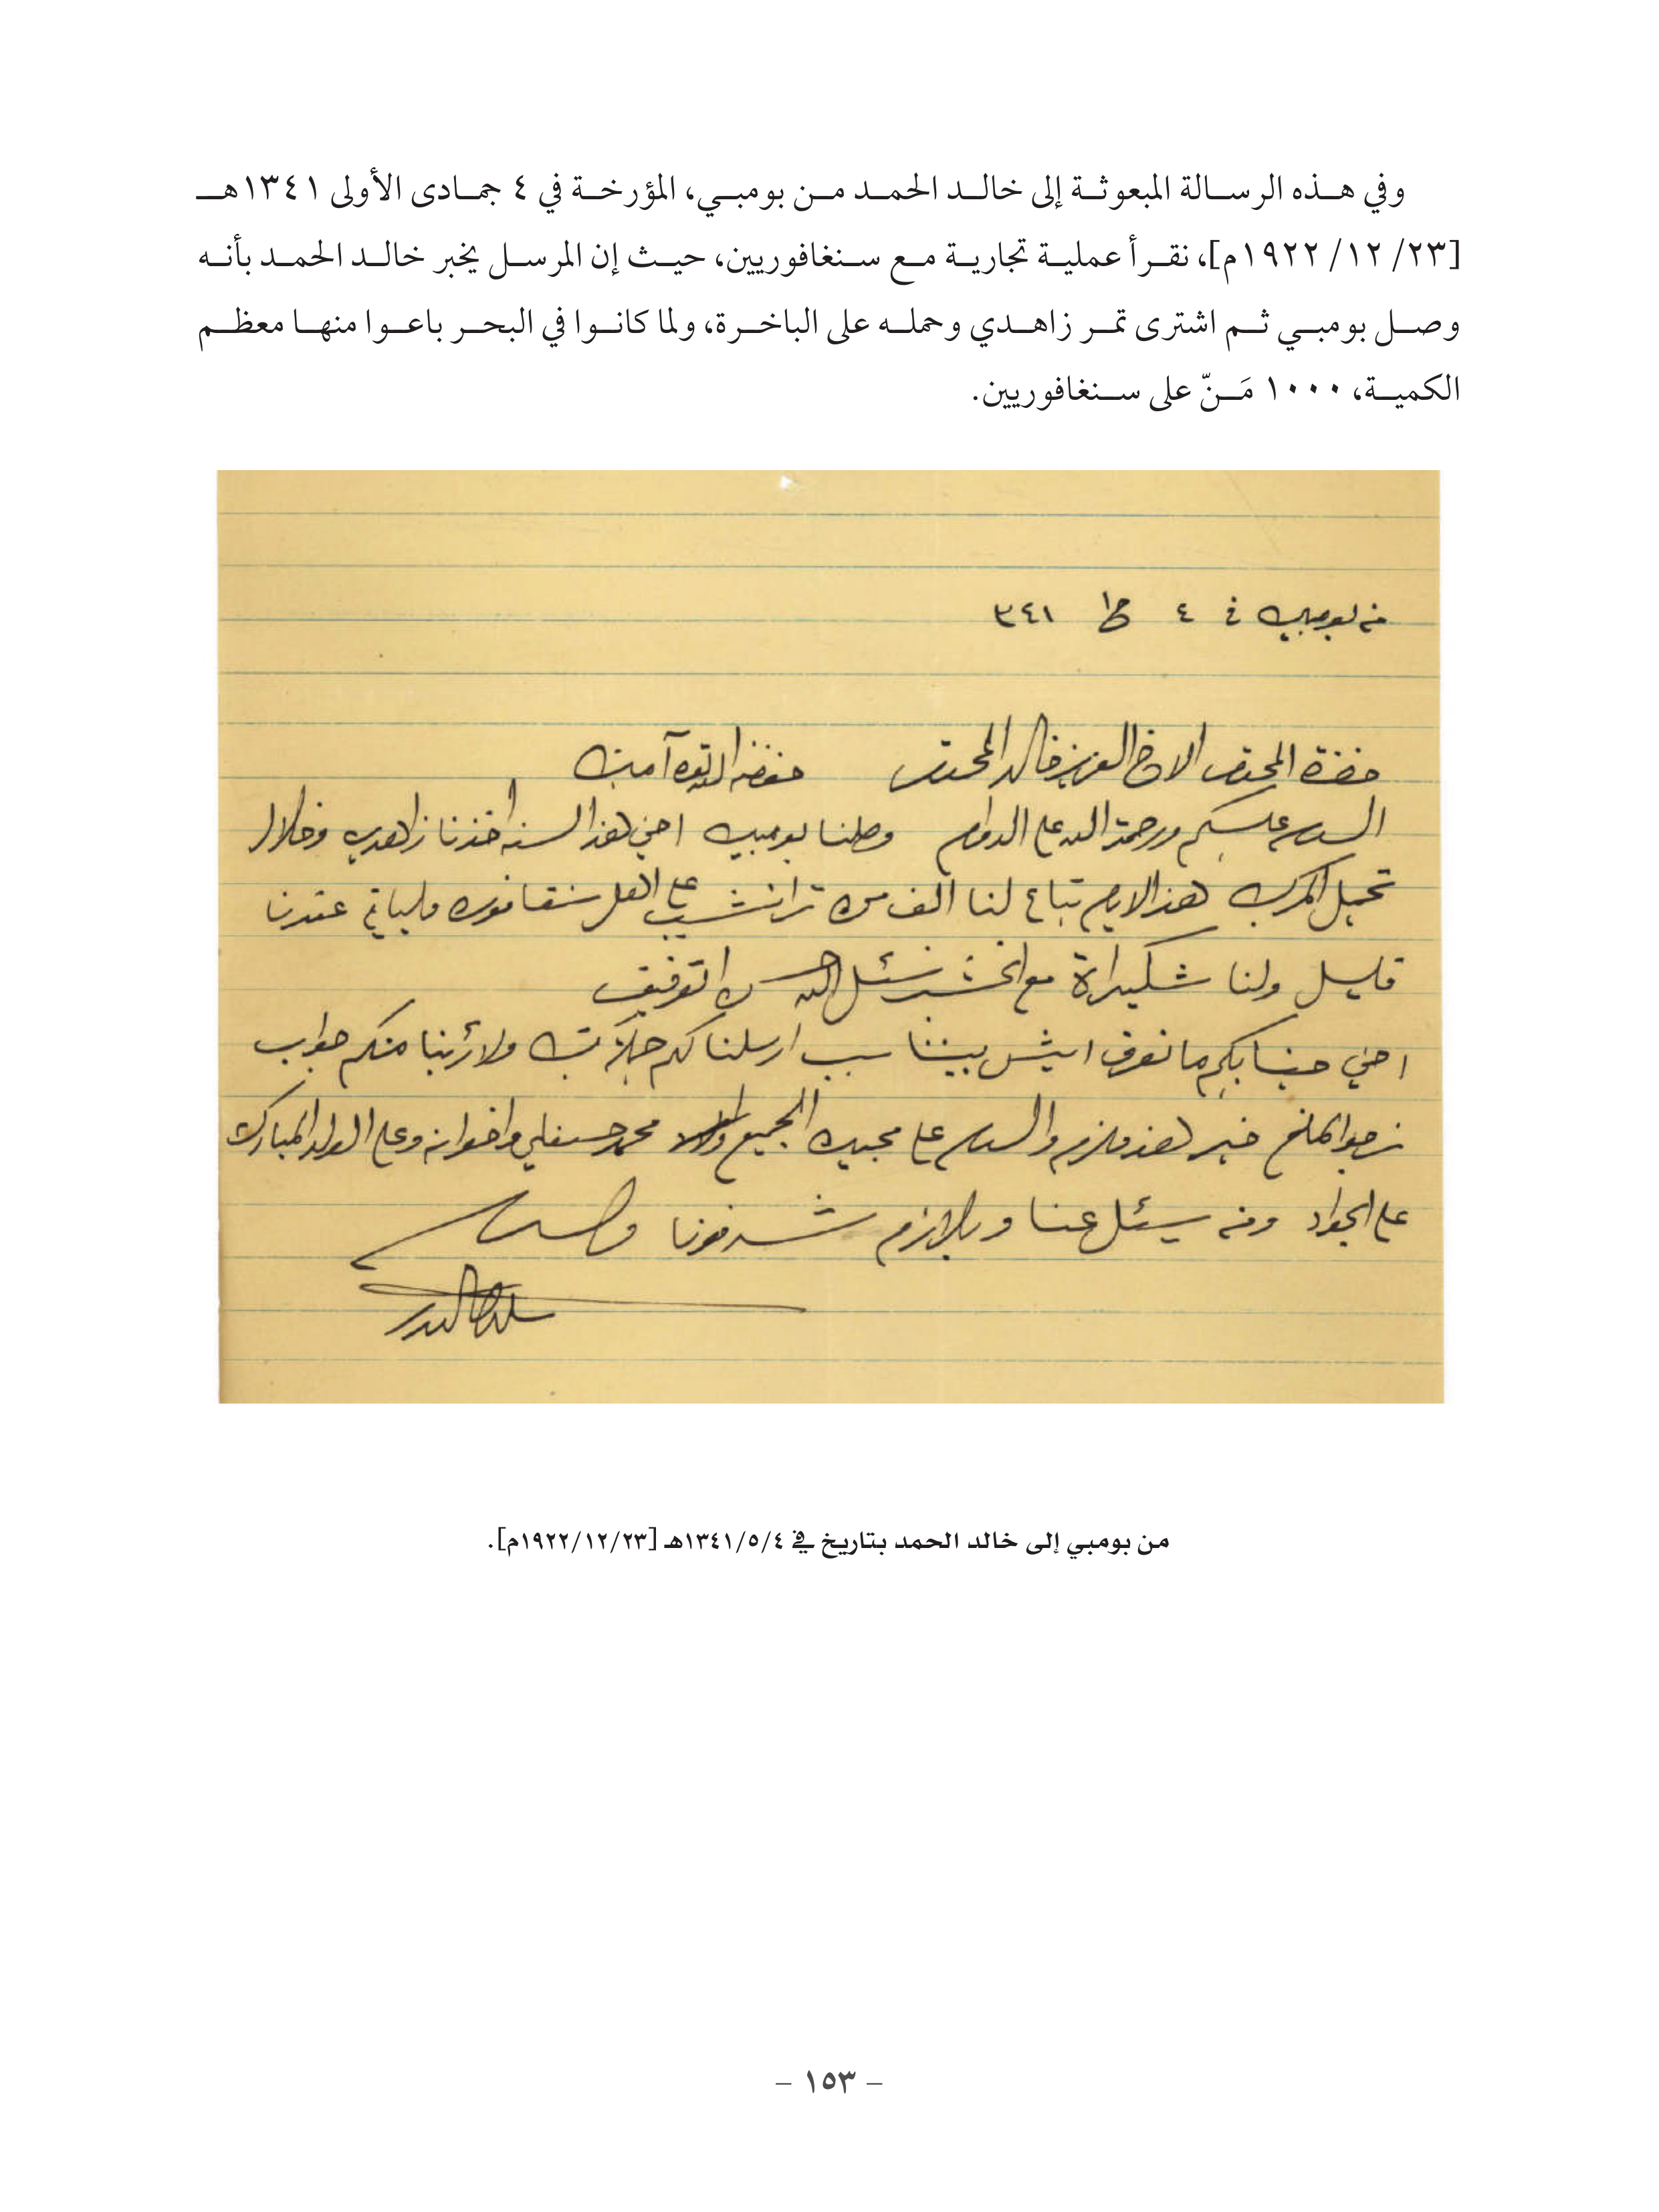 وفي هذه الرسالة المبعوثة إلى خالد الحمد من بومبي، المؤرخة في ٤ جمادى الأولى ١٣٤١هـ
[٢٣/ ١٢/ ١٩٢٢م]، نقرأ عملية تجارية مع سنغافوريين، حيث إن المرسل يخبر خالد الحمد بأنه
وصل بومبي ثم اشترى تمر زاهدي وحمله على الباخرة، ولما كانوا في البحر باعوا منها معظم
الكمية، ١٠٠٠ مَنّ على سنغافوريين.
من بومبي في ٤ ج١ ٣٤١
حضرة المحترم الاخ العزيز خالد المحترم حفضه الله آمين
السلام عليكم ورحمة الله على الدوام وصلنا بومبي اخي هذا السنه اخذنا زاهدي وخلال
تحميل المركب هذا الايام تباع لنا الف من على سنقافوره عندنا
قليل ولنا مع نسئل الله التوفيق
اخي جنابكم ما نعرف ايش بيننا سبب ارسلنا لكم جملة كتب ولا رئينا منكم جواب
نرجوا المانع خير هذا ملزم والسلام على محبيك الجميع محمد واخوانه وعلى الولد المبارك
على الجواد ومن يسئل عنا وباللازم شرفونا والسلام
من بومبي إلى خالد الحمد بتاريخ في ١٣٤١/٥/٤هـ [١٩٢٢/١٢/٢٣م].
– ١٥٣ –